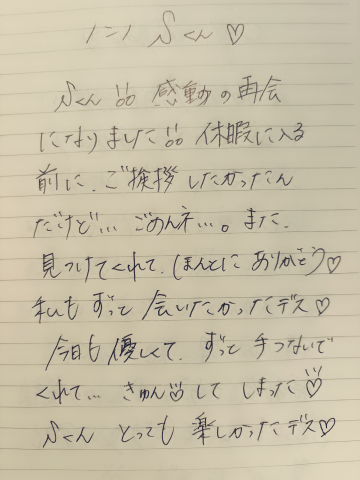 ハニハ Sくん♡
Sくん!!! 感動の再会
になりました!!! 休暇に入る
前に、ご挨拶したかったん
だけど… ごめんネ…。また、
見つけてくれて、ほんとにありがとう♡
私もずっと会いたかったデス♡
今日も優しくて、ずっと手つないで
くれて… きゅん♡してしまった♡
Sくん とっても楽しかったデス♡